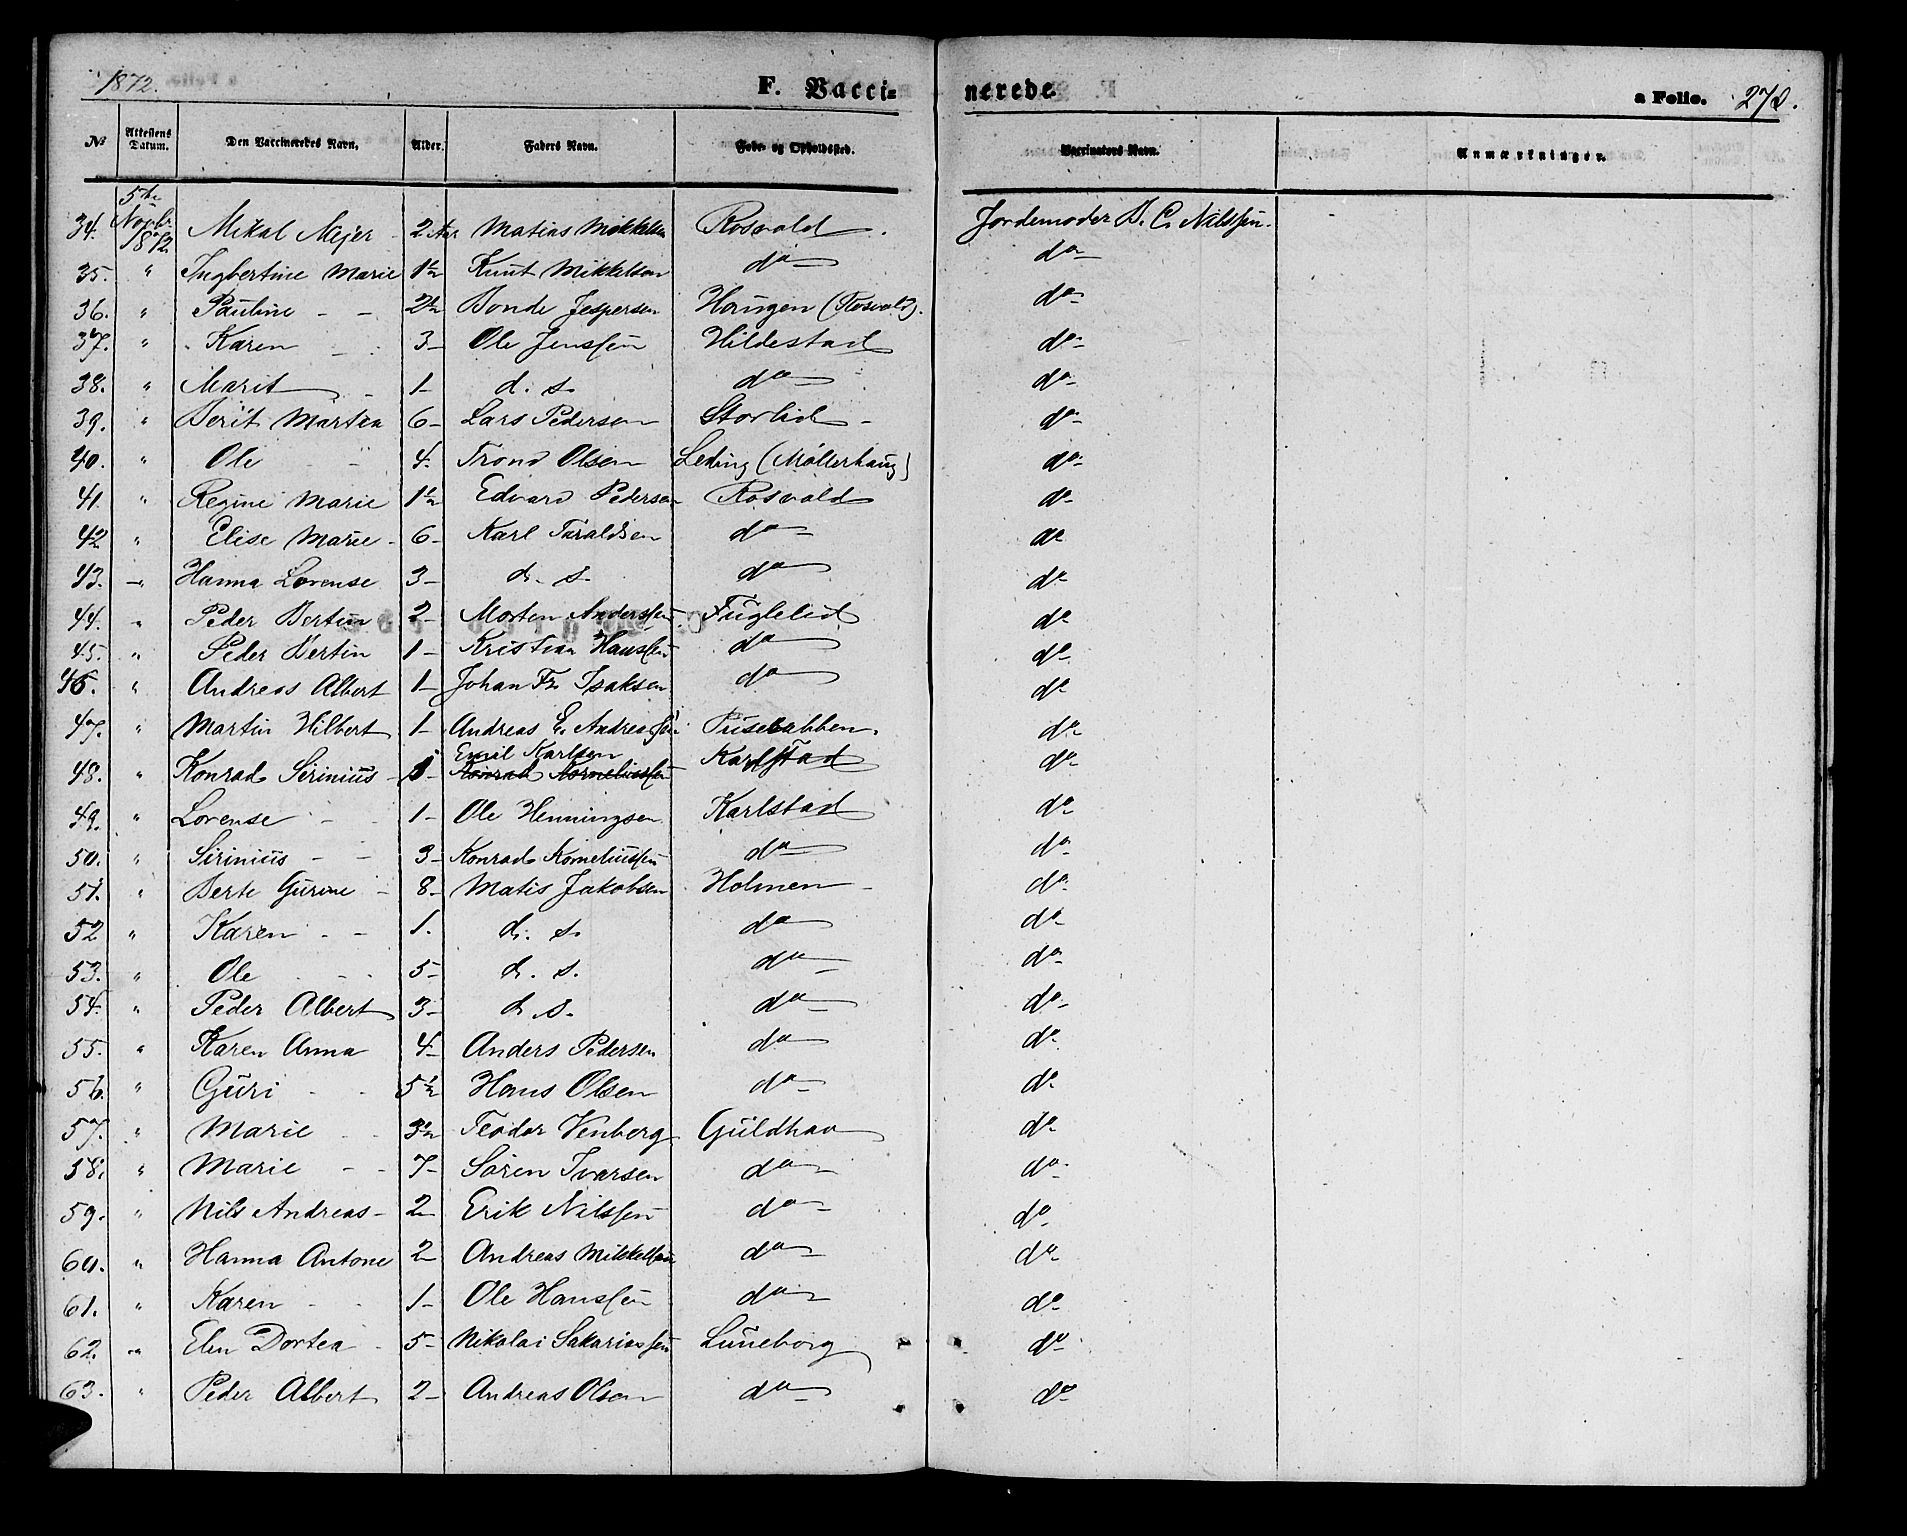 1872. F. Vacci- nerede a Folio. 270.
No Attestens Datum. Den Vaccineredes Navn. Alder. Faders Navn. Føde- og Opholdssted. Vaccinators Navn. Anmærkninger.
5te
34. Novbr. 1872 Mikal Mejer 2 Aar Matias Mikkelsen Rosvold. Jordemoder B. C. Nilssen.
35. " Ingbertine Marie 1½ Knut Mikkelsen do do
36. " Pauline - - 2½ Bonde Jespersen Haugen (Rosvold). do
37. " Karen - 3- Ole Jenssen Hildestad do
38. " Marit - 1- d. s. do do
39. " Berit Martea 6- Lars Pedersen Storlid - do
40. " Ole 4. Trond Olsen Leding (Møllerhaug) do
41. " Regine Marie 1½ Edvard Pedersen Rosvold do
42 " Elise Marie - 6- Karl Taraldsen do do
43. " Hanna Lorense 3- d. s. do do
44. " Peder Bertin 2- Morten Anderssen Fuglelid do
45. " Peder Bertin 1- Kristian Hanssen do do
46. " Andreas Albert 1- Johan Fr. Isaksen do do
47. " Martin Hilbert 1- Andreas E. Andreassen Tusebakken. do
Emil Karlsen
48. " Konrad Sirinius - Konrad Korneliussen Karlstad do
49. " Lorense - - 1- Ole Henningsen Karlstad do
50. " Sirinius - - 3- Konrad Korneliussen do do
51. " Berte Gurine - 8- Matis Jakobsen Holmen - do
52 " Karen - - 1. d. s. do do
53. " Ole - - 5- d. s. do do
54. " Peder Albert 3- d. s. do do
55. " Karen Anna 4- Anders Pedersen do do
56. " Guri - - 5½ Hans Olsen do do
57. " Marie - - 3½ Teodor Venberg Guldhav do
58. " Marie - - 7- Søren Ivarsen do do
59. " Nils Andreas - 2- Erik Nilssen do do
60. " Hanna Antone 2- Andreas Mikkelsen do do
61. " Karen - - 1- Ole Hanssen do do
62. " Elen Dortea - 5- Nikolai Sakariassen Luneborg do
63. " Peder Albert 2- Andreas Olsen do do